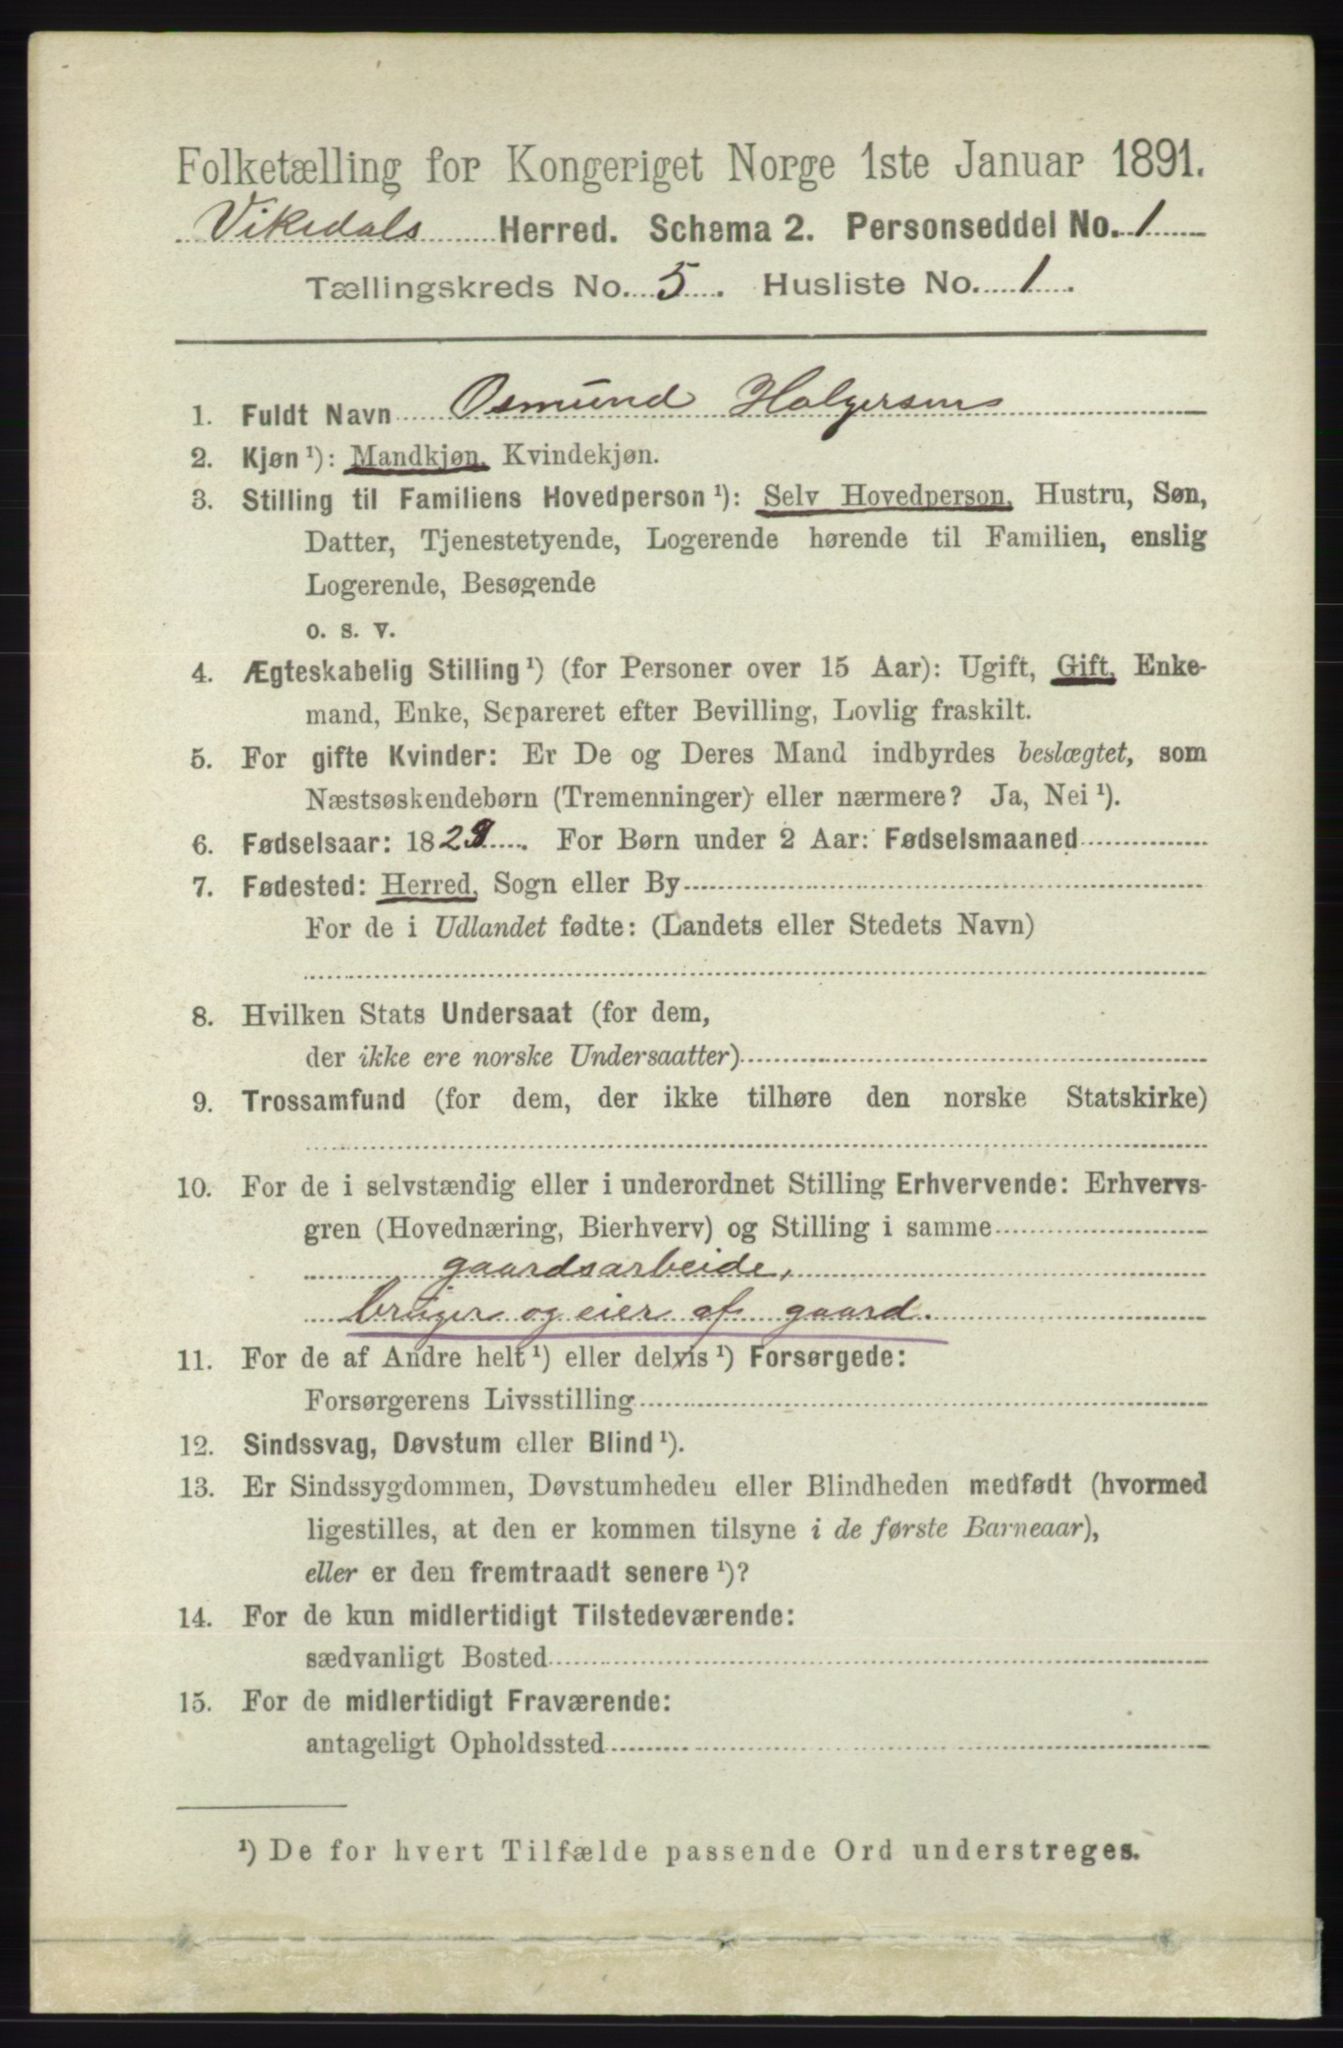 Folketælling for Kongeriget Norge 1ste Januar 1891.
Vikedals Herred. Schema 2. Personseddel No. 1
Tællingskreds No. 5. Husliste No. 1.
1. Fuldt Navn Osmund Holgersen
2. Kjøn ¹): Mandkjøn, Kvindekjøn.
3. Stilling til Familiens Hovedperson ¹): Selv Hovedperson, Hustru, Søn,
Datter, Tjenestetyende, Logerende hørende til Familien, enslig
Logerende, Besøgende
o. s. v.
4. Ægteskabelig Stilling ¹) (for Personer over 15 Aar): Ugift, Gift, Enke-
mand, Enke, Separeret efter Bevilling, Lovlig fraskilt.
5. For gifte Kvinder: Er De og Deres Mand indbyrdes beslægtet, som
Næstsøskendebørn (Tremenninger) eller nærmere? Ja, Nei ¹).
6. Fødselsaar: 1829. For Børn under 2 Aar: Fødselsmaaned
7. Fødested: Herred, Sogn eller By
For de i Udlandet fødte: (Landets eller Stedets Navn)
8. Hvilken Stats Undersaat (for dem,
der ikke ere norske Undersaatter)
9. Trossamfund (for dem, der ikke tilhøre den norske Statskirke)
10. For de i selvstændig eller i underordnet Stilling Erhvervende: Erhvervs-
gren (Hovednæring, Bierhverv) og Stilling i samme
gaardsarbeide,
bruger og eier af gaard.
11. For de af Andre helt ¹) eller delvis ¹) Forsørgede:
Forsørgerens Livsstilling
12. Sindssvag, Døvstum eller Blind ¹).
13. Er Sindssygdommen, Døvstumheden eller Blindheden medfødt (hvormed
ligestilles, at den er kommen tilsyne i de første Barneaar),
eller er den fremtraadt senere ¹)?
14. For de kun midlertidigt Tilstedeværende:
sædvanligt Bosted
15. For de midlertidigt Fraværende:
antageligt Opholdssted
¹) De for hvert Tilfælde passende Ord understreges.